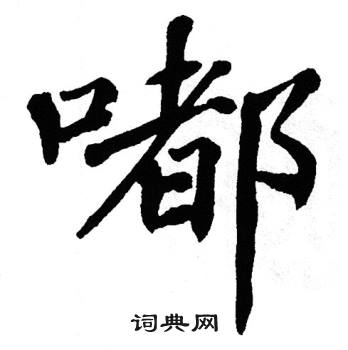 嘟
词典网